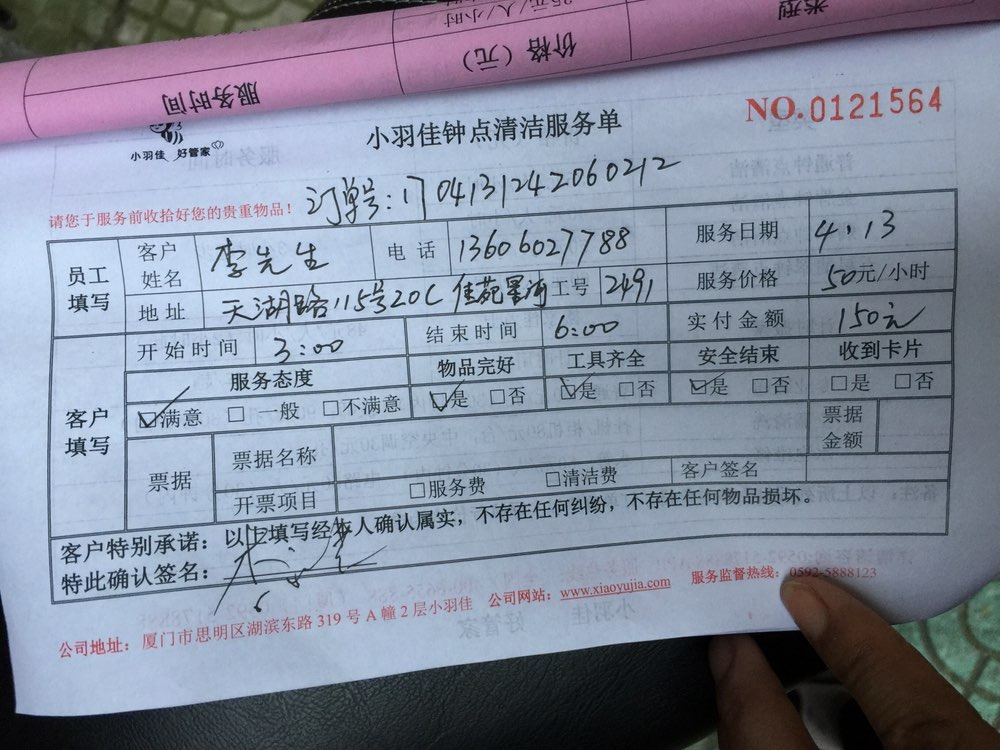 35元/人/小时
类型
价格（元）
服务时间
小羽佳 好管家
小羽佳钟点清洁服务单
NO.0121564
请您于服务前收拾好您的贵重物品！
订单号:1704131242060212
员工填写 客户姓名 李先生 电话 13606027788 服务日期 4.13
地址 天湖路115号20C佳苑星河 工号 2491 服务价格 50元/小时
客户填写 开始时间 3:00 结束时间 6:00 实付金额 150元
服务态度 物品完好 工具齐全 安全结束 收到卡片
☑满意 □一般 □不满意 ☑是 □否 ☑是 □否 ☑是 □否 □是 □否
票据 票据名称 票据金额
开票项目 □服务费 □清洁费 客户签名
客户特别承诺：以上填写经本人确认属实，不存在任何纠纷，不存在任何物品损坏。
特此确认签名：
公司地址：厦门市思明区湖滨东路319号A幢2层小羽佳 公司网站：www.xiaoyujia.com 服务监督热线：0592-5888123